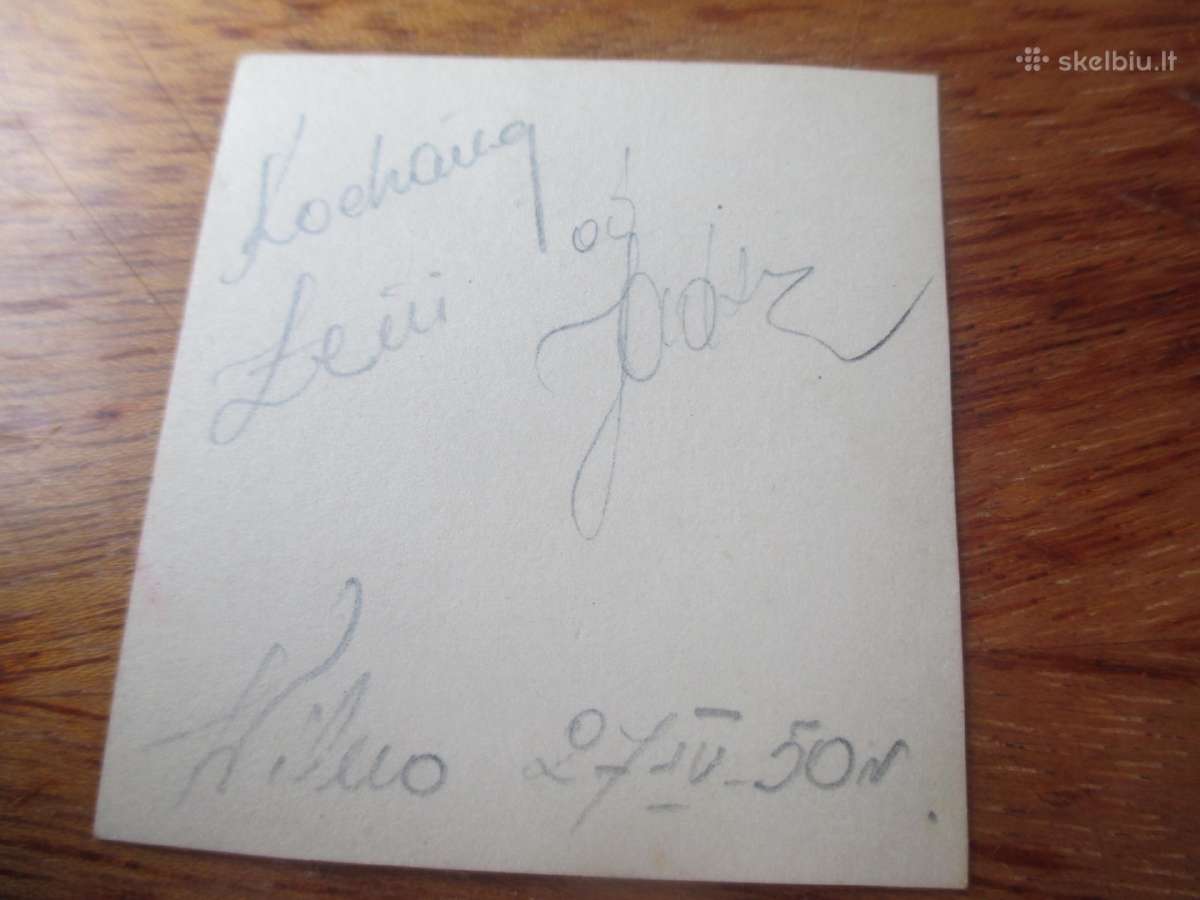 skelbiu.lt
Kochanej
Zeni od Jadzi
Wilno 27-IV-50r.